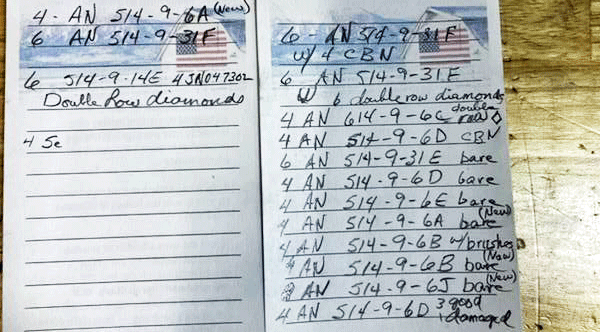 4 - AN 514-9-6A (New)
6 AN 514-9-31F
6 514-9-14E 4JN047302
Double Row diamonds
4 Se
6 - AN 514-9-31F
w/ 4 CBN
6 AN 514-9-31F
W 6 double row diamonds
4 AN 614-9-6C double row ◇
4 AN 514-9-6D CBN
6 AN 514-9-31E bare
4 AN 514-9-6D bare
4 AN 514-9-6E bare
4 AN 514-9-6A bare (New)
4 AN 514-9-6B w/brushes
4 AN 514-9-6B bare (New)
AN 514-9-6J bare (New)
4 AN 514-9-6D 3 good
1 damaged